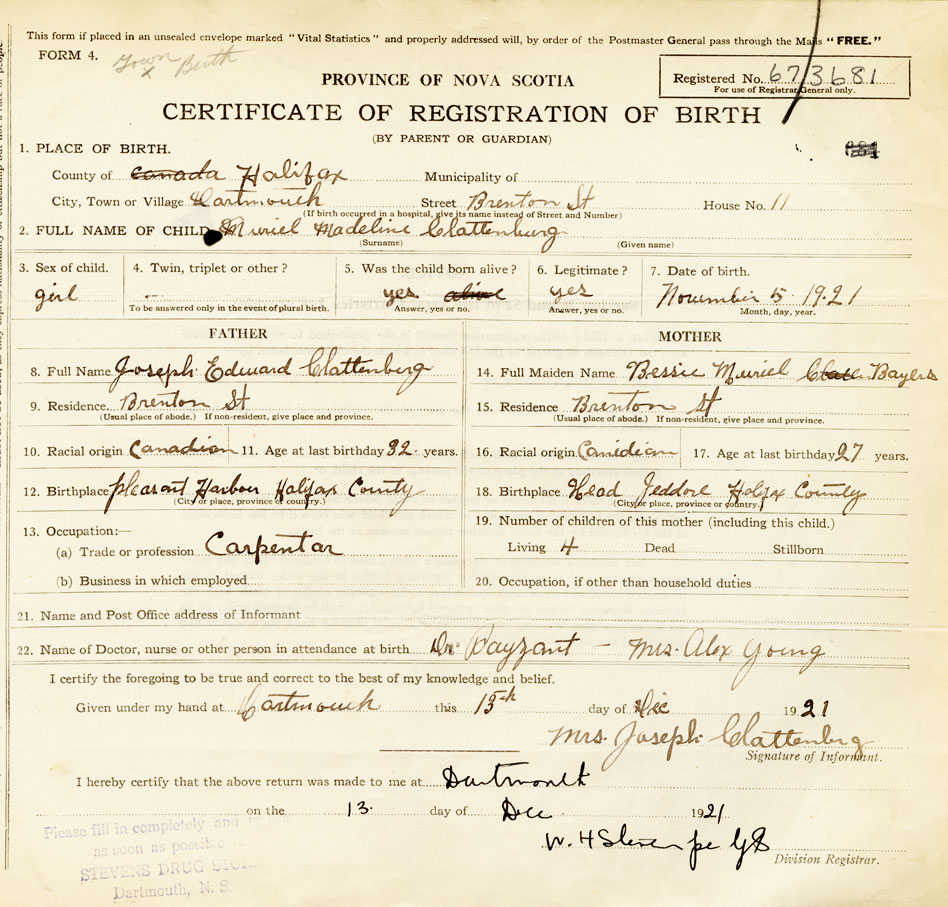 This form if placed in an unsealed envelope marked "Vital Statistics" and properly addressed will, by order of the Postmaster General pass through the Mails "FREE."
FORM 4. Town Birth
x
PROVINCE OF NOVA SCOTIA
Registered No. 673681
For use of Registrar General only.
CERTIFICATE OF REGISTRATION OF BIRTH
(BY PARENT OR GUARDIAN)
1. PLACE OF BIRTH.
County of Canada Halifax Municipality of
City, Town or Village Dartmouth Street Brenton St House No. 11
(If birth occurred in a hospital, give its name instead of Street and Number)
2. FULL NAME OF CHILD Muriel Madeline Clattenburg
(Surname) (Given name)
3. Sex of child. 4. Twin, triplet or other? 5. Was the child born alive? 6. Legitimate? 7. Date of birth.
girl yes alive yes November 5 1921
To be answered only in the event of plural birth. Answer, yes or no. Answer, yes or no. Month, day, year.
FATHER MOTHER
8. Full Name Joseph Edward Clattenberg 14. Full Maiden Name Bessie Muriel Bayers
9. Residence. Brenton St 15. Residence Brenton st
(Usual place of abode.) If non-resident, give place and province. (Usual place of abode.) If non-resident, give place and province.
10. Racial origin Canadian 11. Age at last birthday 32 years. 16. Racial origin Canidian 17. Age at last birthday 27 years.
12. Birthplace pleasant Harbour Halifax County 18. Birthplace Head Jeddore Halifax County
(City or place, province or country.) (City or place, province or country.)
13. Occupation:— 19. Number of children of this mother (including this child.)
(a) Trade or profession Carpentar Living 4 Dead Stillborn
(b) Business in which employed 20. Occupation, if other than household duties
21. Name and Post Office address of Informant
22. Name of Doctor, nurse or other person in attendance at birth Dr Payzant — Mrs. Alex Young
I certify the foregoing to be true and correct to the best of my knowledge and belief.
Given under my hand at Dartmouth this 13th day of Dec 1921
Mrs. Joseph Clattenbrg
Signature of Informant.
I hereby certify that the above return was made to me at Dartmouth
on the 13. day of Dec 1921
W. H
Division Registrar.
Please fill in completely and
as soon as possible
STEVENS DRUG STORE
Dartmouth, N. S.